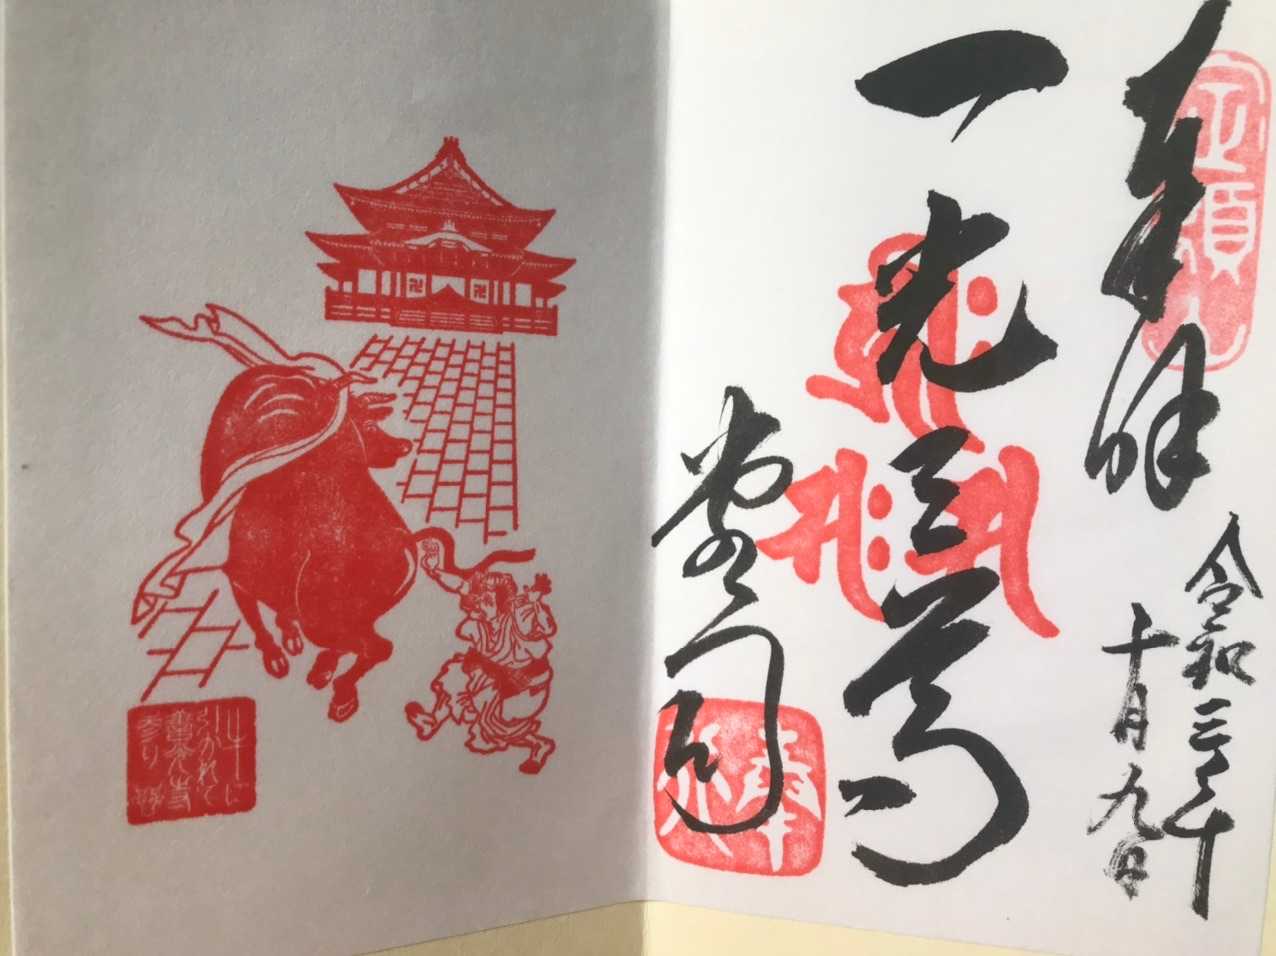 奉拝
定額山
令和三年
十月九日
一光三尊
牛に
引かれて
善光寺
参り